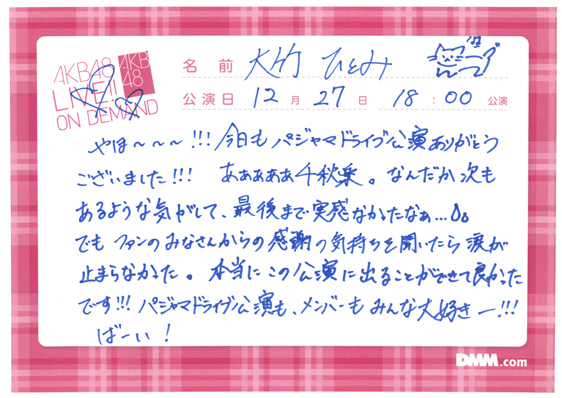 AKB48
LIVE!!
ON DEMAND
AKB
48
名前 大竹 ひとみ
公演日 12月27日 18:00 公演
やほ〜〜〜!!! 今日もパジャマドライブ公演ありがとう
ございました!!! あぁぁぁぁ千秋楽。なんだか次も
あるような気がして、最後まで実感なかたなぁ...
でも ファンのみなさんからの感謝の気持ちを聞いたら涙が
止まらなかた。本当にこの公演に出ることができて良かった
です!!! パジャマドライブ公演も、メンバーもみんな大好きー!!!
ばーい!
DMM.com